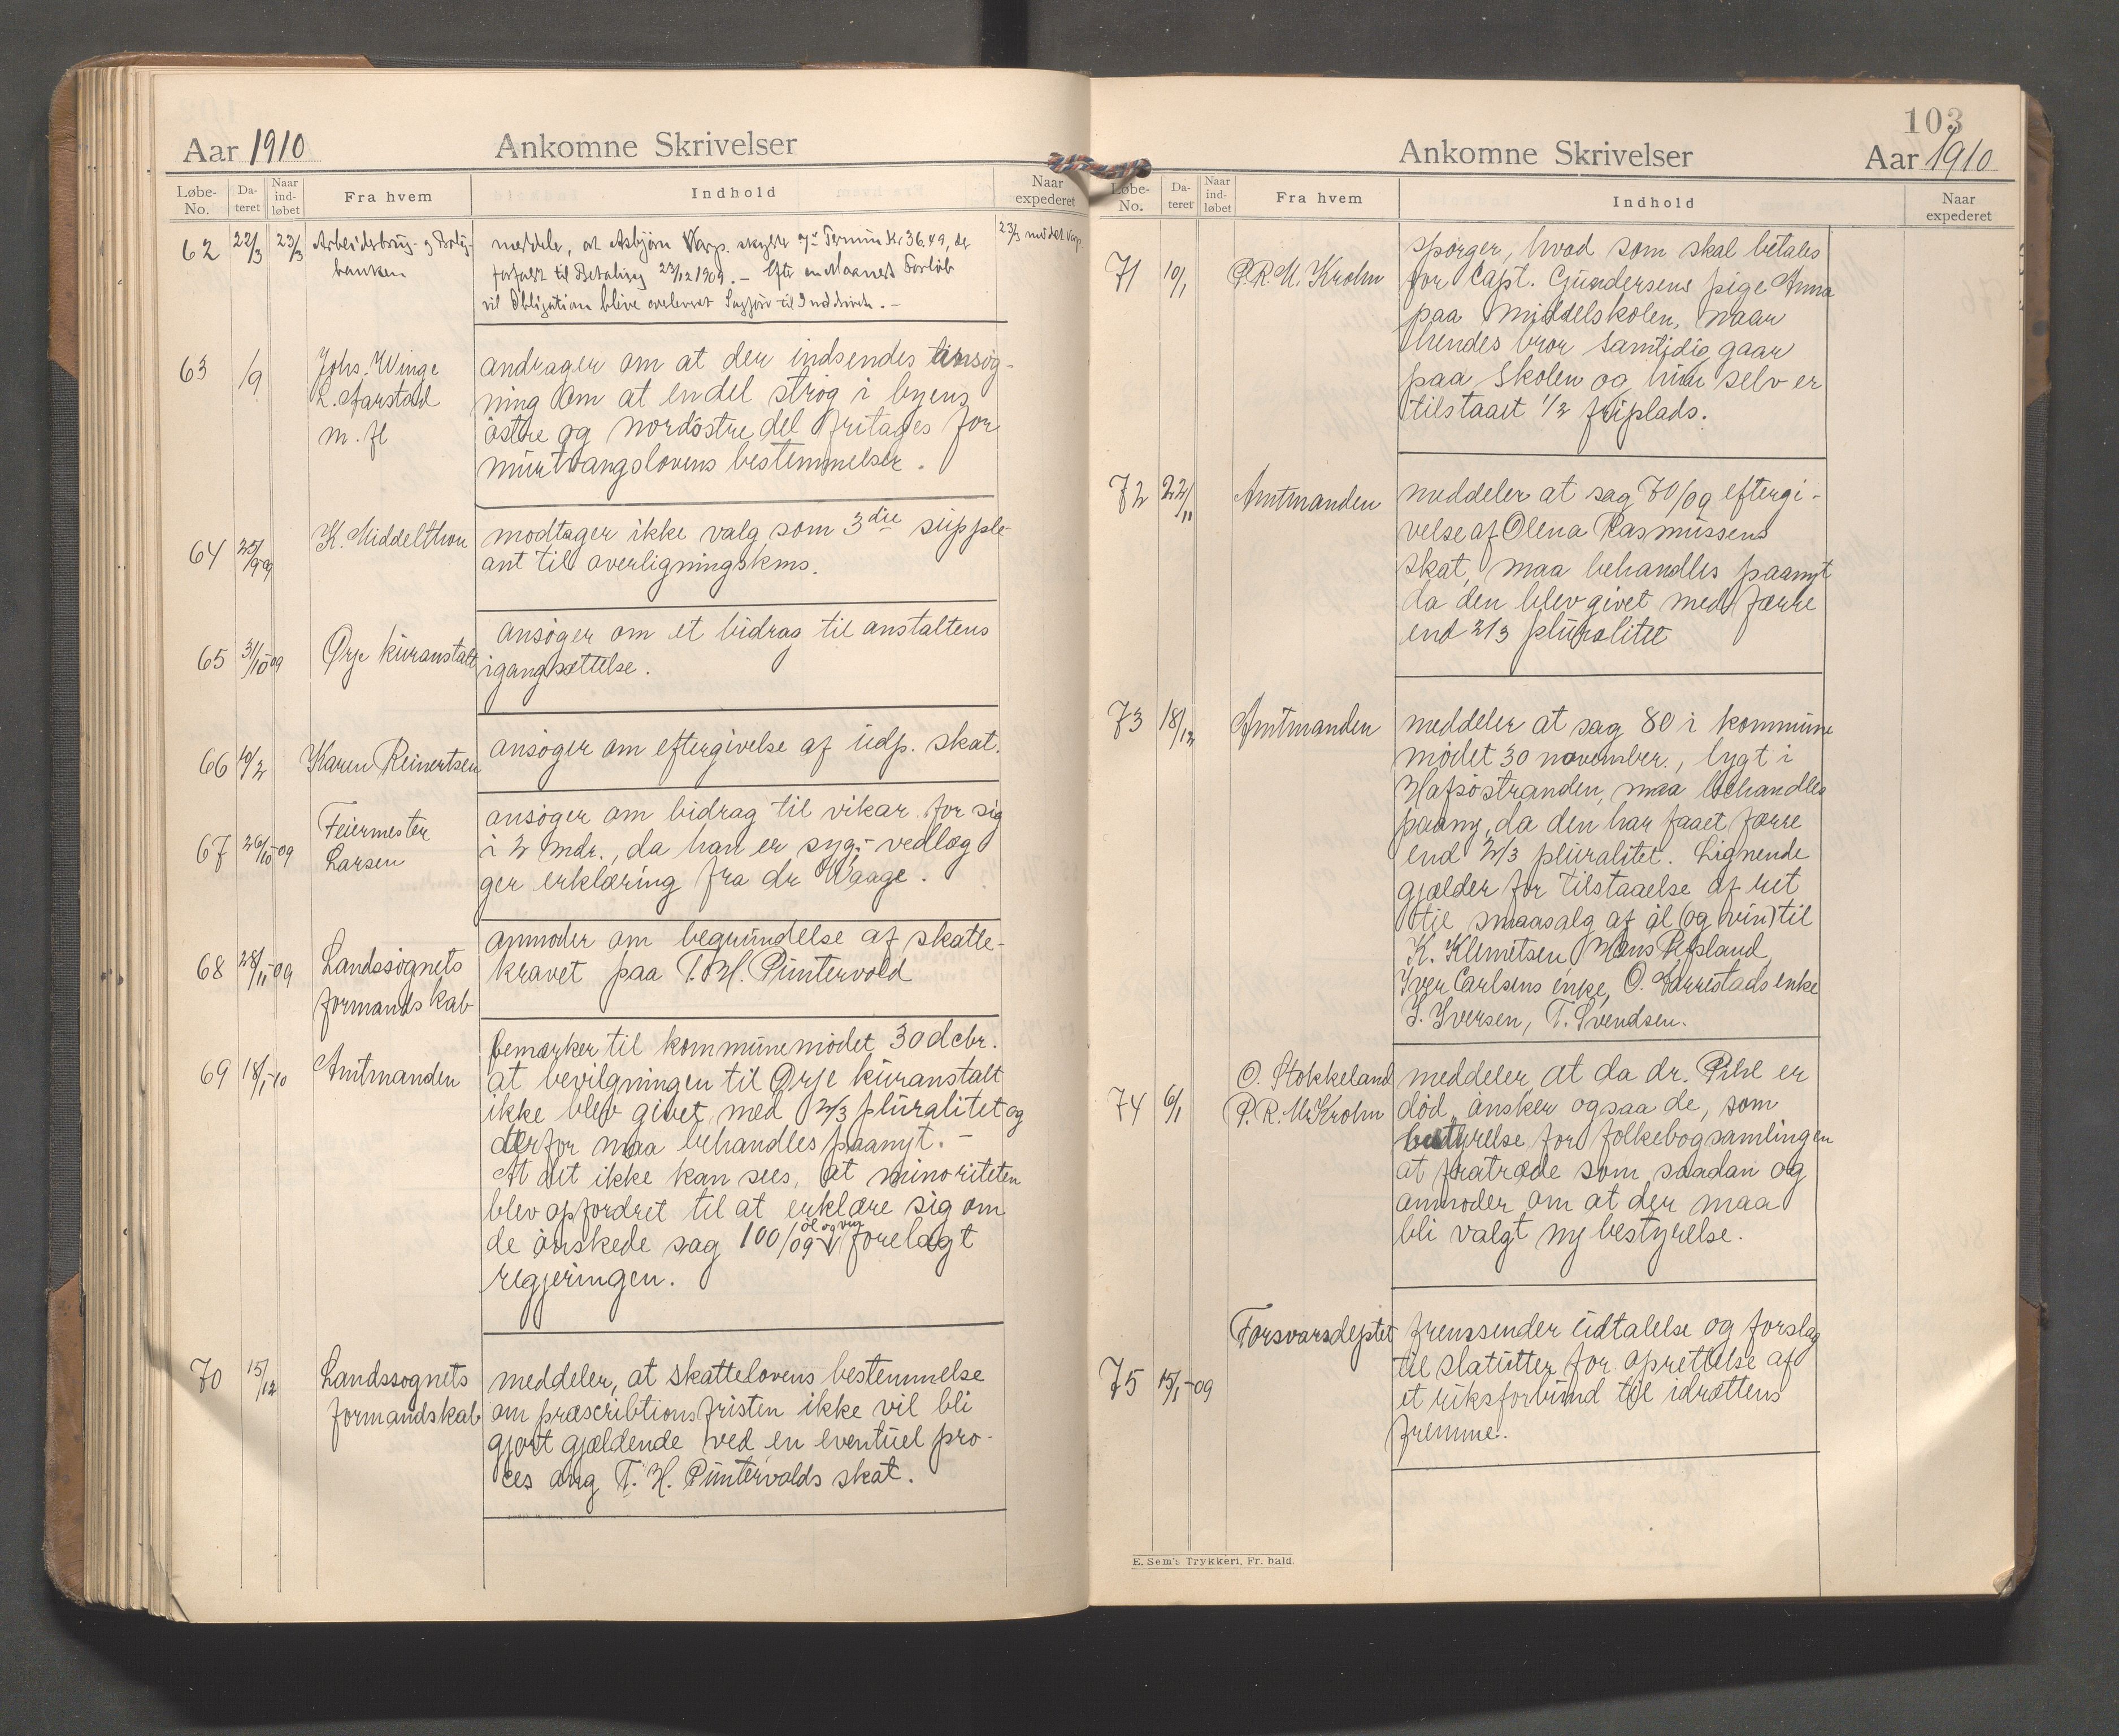 Aar 1910
Ankomne Skrivelser
Løbe-No.
Da-teret
Naar ind-løbet
Fra hvem
Indhold
Naar expederet
62 22/3 23/3 Arbeiderbrug- og Bolig-
banken
meddeler, at Asbjørn Termin Kr 36.49, der
forfaldt til Betaling 23/12 1909. – Efter en Maaneds Forløb
vil Obligation blive overleveret Sagfører til Inddrivelse. –
23/3
63 /9 Johs. Winge
L. Aarstad
m. fl
andrager om at der indsendes ansøg-
ning om at endel strøg i byens
østre og nordøstre del fritages for
murtvangslovens bestemmelser.
64 25/9-09 K. Middelthon
modtager ikke valg som 3die supple-
ant til overligningskms.
65 31/10-09 Ørje kuranstalt
ansøger om et bidrag til anstaltens
igangsættelse.
66 10/2 Karen Reinertsen
ansøger om eftergivelse af udp. skat.
67 26/10-09 Feiermester
Larsen
ansøger om bidrag til vikar for sig
i 2 mdr., da han er syg; - vedlæg
ger erklæring fra dr Waage.
68 28/11-09 Landssognets
formandskab
anmoder om begrundelse af skatte-
kravet paa T. H. Puntervold
69 18/1-10 Amtmanden
bemærker til kommunemødet 30 dcbr.
at bevilgningen til Ørje kuranstalt
ikke blev givet med 2/3 pluralitet og
derfor maa behandles paanyt. –
At det ikke kan sees, at minoriteten
blev opfordret til at erklære sig om
øl og vin
de ønskede sag 100/09 forelagt
regjeringen.
70 15/12 Landssognets
formandskab
meddeler, at skattelovens bestemmelse
om præscribtionsfristen ikke vil bli
gjort gjældende ved en eventuel pro-
ces ang T. H. Puntervolds skat.
103
Ankomne Skrivelser
Aar 1910
Løbe-No.
Da-teret
Naar ind-løbet
Fra hvem
Indhold
Naar expederet
71 10/1 P. R. M. Krohn
spørger, hvad som skal betales
for Capt. Gundersens pige Anna
paa middelskolen, naar
hendes bror samtidig gaar
paa skolen og hun selv er
tilstaaet 1/2 friplads.
72 22/11 Amtmanden
meddeler at sag 70/09 eftergi-
velse af Olena Rasmussens
skat, maa behandles paanyt
da den blev givet med færre
end 2/3 pluralitet
73 18/12 Amtmanden
meddeler at sag 80 i kommune
mødet 30 november, lygt i
Hafsøstranden, maa behandles
paany, da den har faaet færre
end 2/3 pluralitet. Lignende
gjælder for tilstaaelse af ret
til smaasalg af øl (og vin) til
K. Klemetsen, Mons Refsland,
Iver Carlsens enke, O. Gurrestads enke
I. Iversen, T. Svendsen.
74 6/1 O. Stokkeland
P. R. M. Krohn
meddeler at da dr. Pihl er
død, ønsker ogsaa de, som
bestyrelse for folkebogsamlingen
at fratræde som saadan og
anmoder om at der maa
bli valgt ny bestyrelse.
75 15/1-09 Forsvarsdeptet
fremsender udtalelse og forslag
til statutter for oprettelse af
et riksforbund til idrættens
fremme.
E. Sem's Trykkeri, Fr.hald.